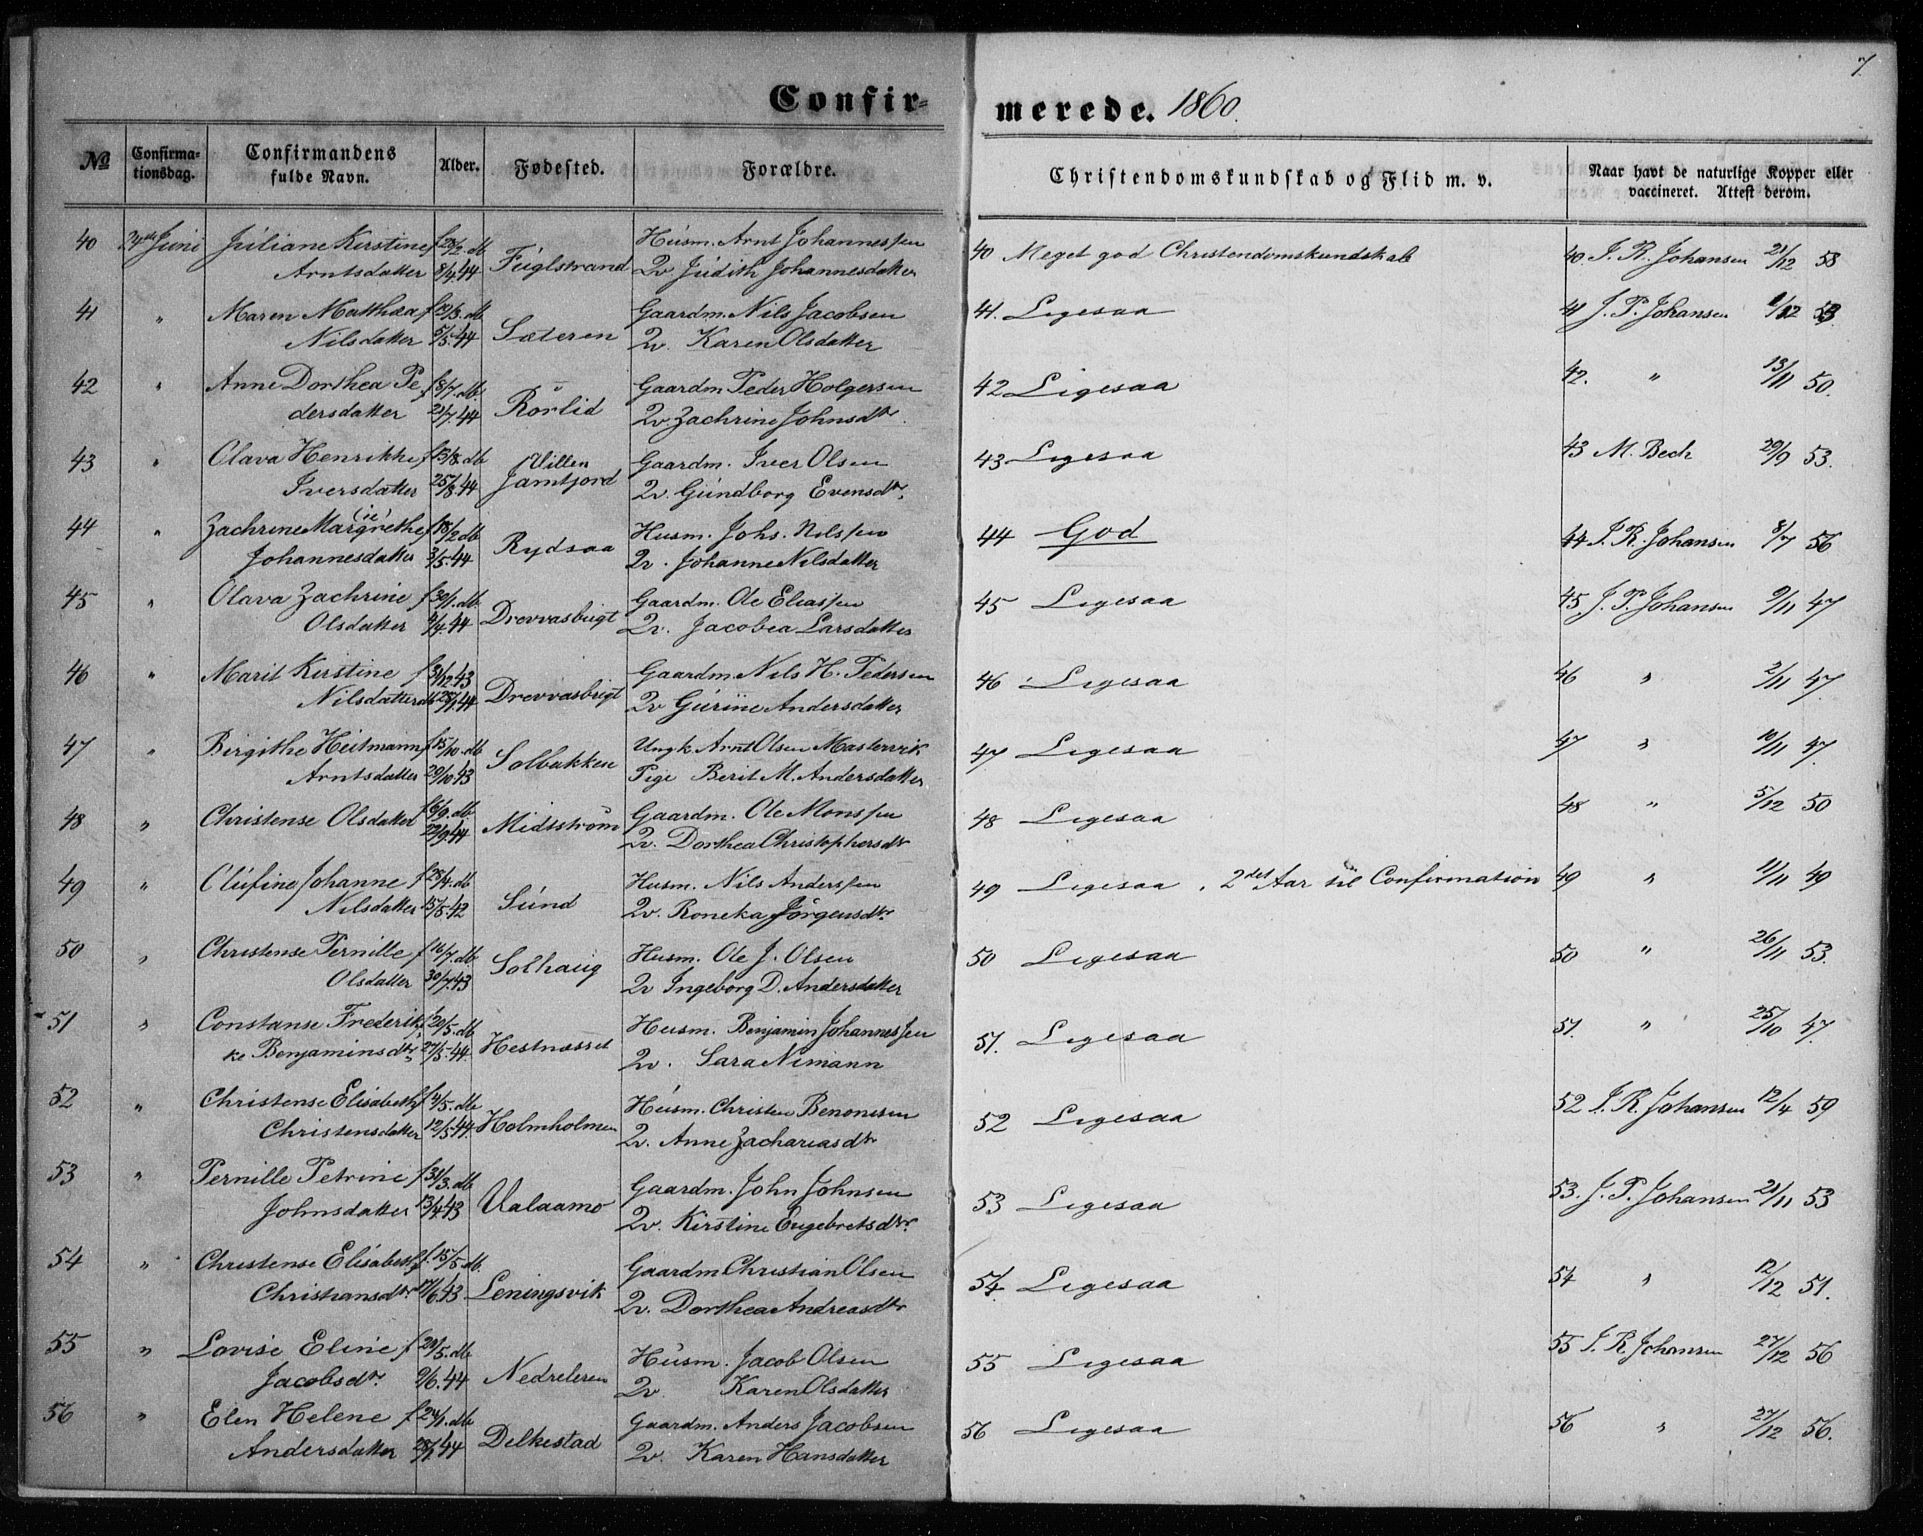 7
Confir-
merede. 1860.
No
Confirma-
tionsdag.
Confirmandens
fulde Navn.
Alder.
Fødested.
Forældre.
Christendomskundskab og Flid m. v.
Naar havt de naturlige Kopper eller
vaccineret. Attest derom.
40 24de Juni Juliane Kirstine f 28/2. db Husm. Arnt Johannessen
Arntsdatter 8/4.44 Fuglstrand Qv Judith Johannesdatter
40 Meget god Christendomskundskab 40. I. R. Johansen 21/12 58
41 " Maren Matthea f 19/3. db Gaardm. Nils Jacobsen
Nilsdatter 5/5.44 Sæteren Qv. Karen Olsdatter
41. Ligesaa 41 J. P. Johansen 1/12 53.
42 " Anne Dorthea Pe f 8/7. db Gaardm. Peder Holgersen
dersdatter 21/7.44 Rörlid Qv Zachrine Johnsdtr.
42 Ligesaa 42. " 13/11 50.
43 " Olava Henrikke f 13/8. db Villen Gaardm. Iver Olsen
Iversdatter 25/8.44 Jamtfjord Qv. Gundborg Evensdtr.
43 Ligesaa 43 M. Bech 29/9 53.
44 " Zachrine Margrethe (ie) f 18/2 db Husm. Johs. Nilssen
Johannesdatter 3/5.44 Rydsaa Qv. Johanne Nilsdatter
44 God 44 I. R. Johansen 8/7 56
45 " Olava Zachrine f 30/1. db. Gaardm. Ole Eliassen
Olsdatter 9/4.44 Drevvasbugt Qv. Jacobea Larsdatter
45 Ligesaa 45. J. P. Johansen 9/11 47
46 " Marit Kirstine f 3/12.43 Gaardm. Nils H. Pedersen
Nilsdatter db 28/1.44 Drevvasbugt Qv Gurine Andersdatter
46 Ligesaa 46 " 2/11 47.
47 " Birgithe Heitmann f 15/10. db Ungk Arnt Olsen Mastervik
Arntsdatter 29/10 43 Solbakken Pige Berit M. Andersdatter
47 Ligesaa 47 " 10/11 47.
48 " Christense Olsdatter f 6/9. db Gaardm. Ole Monssen
22/9.44 Midtström Qv. Dorthea Christophersdtr
48 Ligesaa 48 " 5/12 50
49 " Olufine Johanne f 28/4. db Husm. Nils Anderssen
Nilsdatter 15/5.42 Sund Qv. Roneka Jörgensdtr.
49 Ligesaa, 2det Aar til Confirmation 49 " 11/11 49
50 " Christense Pernille f 16/7. db Husm. Ole J. Olsen
Olsdatter 30/7.43 Solhaug Qv Ingeborg D. Andersdatter
50 Ligesaa 50 " 26/11 53.
51 " Constanse Frederik f 20/5. db Husm. Benjamin Johannessen
ke Benjaminsdtr. 27/5.44. Hestnæsset Qv. Sara Nimann
51. Ligesaa 51. " 25/10 47.
52 " Christense Elisabeth f 4/5. db Husm. Christen Benonisen
Christensdatter 12/5.44. Holmholmen Qv. Anne Zachariasdtr
52 Ligesaa 52 I. R. Johansen 12/4 59
53 " Pernille Petrine f 31/3. db Gaardm. John Johnsen
Johnsdatter 13/4.43 Ualaamo Qv. Kirstine Engebretsdtr.
53 Ligesaa 53. J. P. Johansen 21/11 53
54 " Christense Elisabeth f. 15/5. db. Gaardm Christian Olsen
Christiansdtr. 11/6.43 Leningsvik Qv. Dorthea Andreasdtr
54. Ligesaa 54 " 12/12 51.
55 " Lovise Eline f 29/5. db Husm. Jacob Olsen
Jacobsdtr. 9/6.44 Nedreleren Qv Karen Olsdatter
55 Ligesaa 55 I. R Johansen 27/12 56
56 " Elen Helene f 24/1. db Gaardm. Anders Jacobsen
Andersdatter 28/1.44 Delkestad Qv. Karen Hansdatter
56 Ligesaa 56 " 27/12 56.